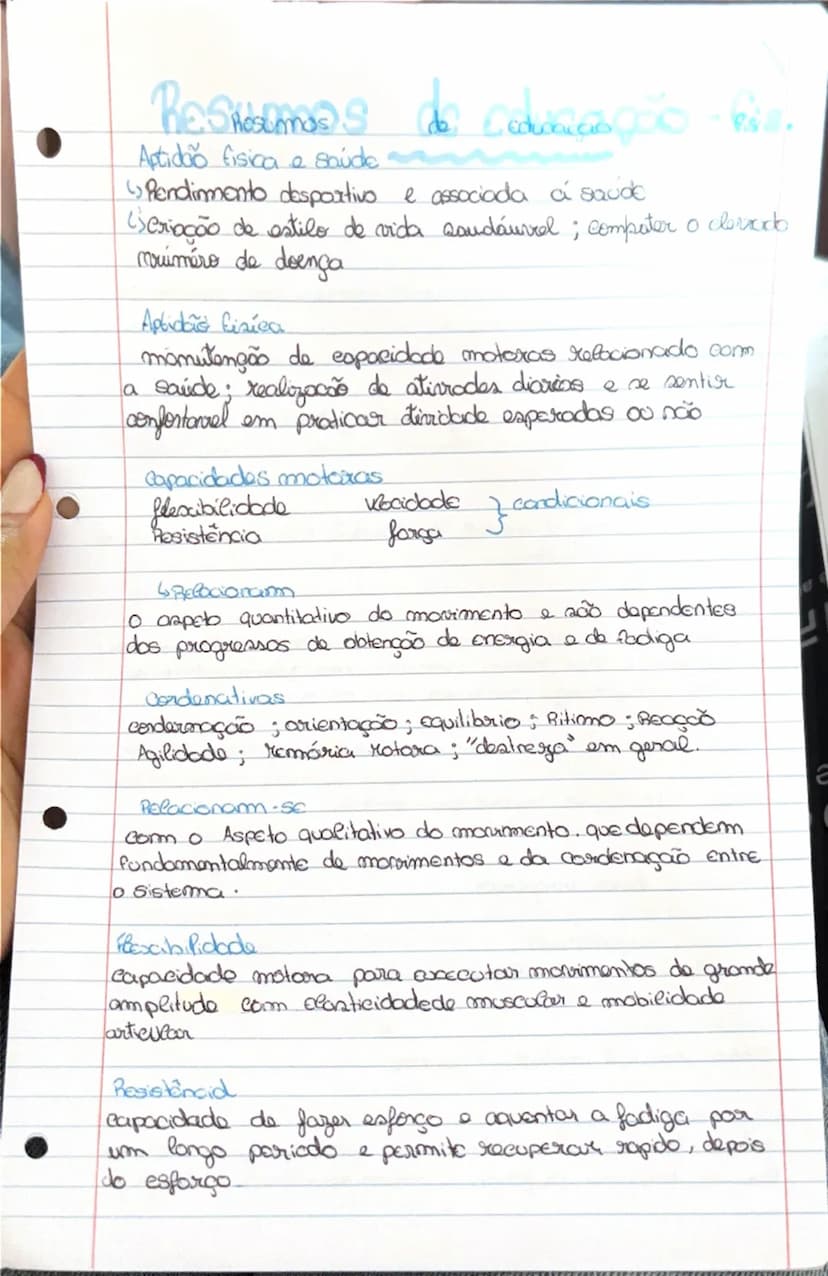 Resumos de educação - fis.
Resumos de educação
Aptidão fisica e saúde
↳ Rendimento desportivo e associada á saúde
↳ criação de estilo de vida saudáuvel ; computer o elevado
nuiméro de doença
Aptidão física
manutenção de capacidade motoras relacionado com
a saúde; realização de ativades diarias e se sentir
confortavel em praticar atividade esperadas ou não
Capacidades motoras
flexibilidade velocidade } condicionais
Resistência força
↳ Relacionam
O aspeto quantitativo do movimento e são dependentes
dos progressos de obtenção de energia e de fadiga
Cordenativas
; orientação ; equilibrio ; Ritimo ; Reacção
Agilidade ; Memória Motora ; "destreza" em geral.
Relacionam-se
com o Aspeto qualitativo do movimento. que dependem
fundamentalmente de movimentos e da cordenação entre
o sistema.
flexibilidade
capacidade motora para executar movimentos de grande
amplitude com elasticidadede muscular e mobilidade
articular
Resistência
capacidade de fazer esforço e aquentar a fadiga por
um longo periodo e permite recuperar rapido, depois
do esforço